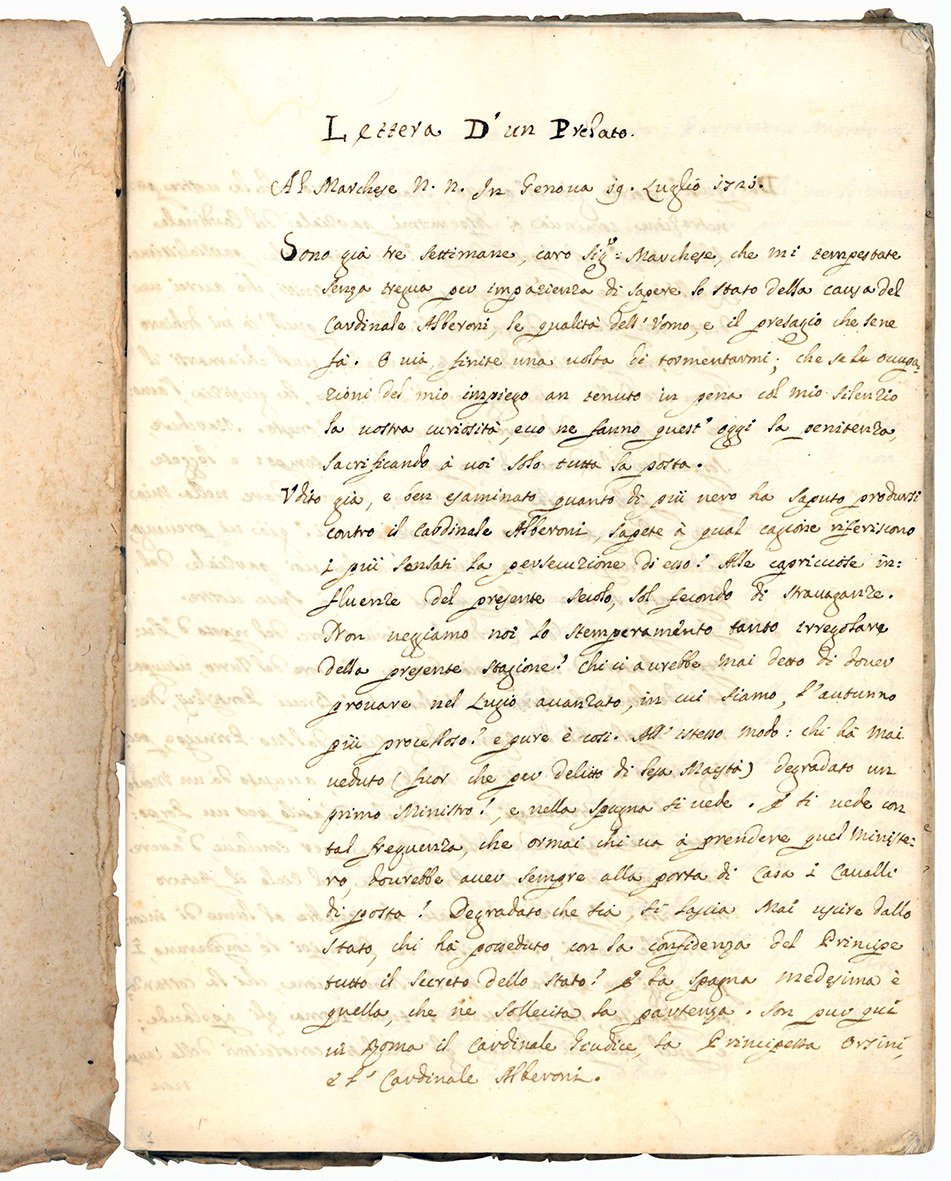 Lettera D'un Prelato.
Al Marchese N. N. In Genova 19. Luglio 1721.
Sono già tre settimane, caro Sig.re Marchese, che mi tempestate
senza tregua per impazienza di sapere lo stato della causa del
Cardinale Alberoni, le qualità dell'Uomo, e il presagio che sene
fà. O via, finite una volta di tormentarmi; che se le occupa-
zioni del mio impiego an tenuto in pena col mio silenzio
la vostra curiosità, ecco ne fanno quest'oggi la penitenza,
sacrificando à voi solo tutta la posta.
Udito già, e ben esaminato quanto di più nero ha saputo prodursi
contro il Cardinale Alberoni, sapete à qual cagione riferiscono
i più sensati la persecuzione di esso? Alle capricciose in:
fluenze del presente secolo, sol fecondo di stravaganze.
Non veggiamo noi lo stemperamento tanto irregolare
della presente stagione? Chi ci avrebbe mai detto di dover
provare nel Luglio avanzato, in cui siamo, l'autunno
più procelloso? e pure è così. All'istesso modo: chi hà mai
veduto (fuor che per delitto di lesa Maestà) degradato un
primo Ministro?, e nella Spagna si vede. e si vede con
tal frequenza, che ormai chi va à prendere quel Ministe:
ro, dovrebbe aver sempre alla porta di Casa i Cavalli
di posta? Degradato che sia si lascia mai uscire dallo
stato, chi hà posseduto con la confidenza del Principe
tutto il secreto dello stato? e la Spagna medesima è
quella, che ne sollecita la partenza. Son pur qui
in Roma il Cardinale Giudice, la Principessa Orsini,
e l' Cardinale Alberoni.